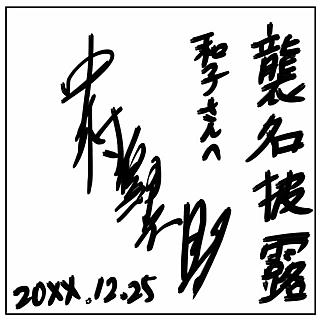 襲名披露
和子さんへ
中村翠助
20XX.12.25